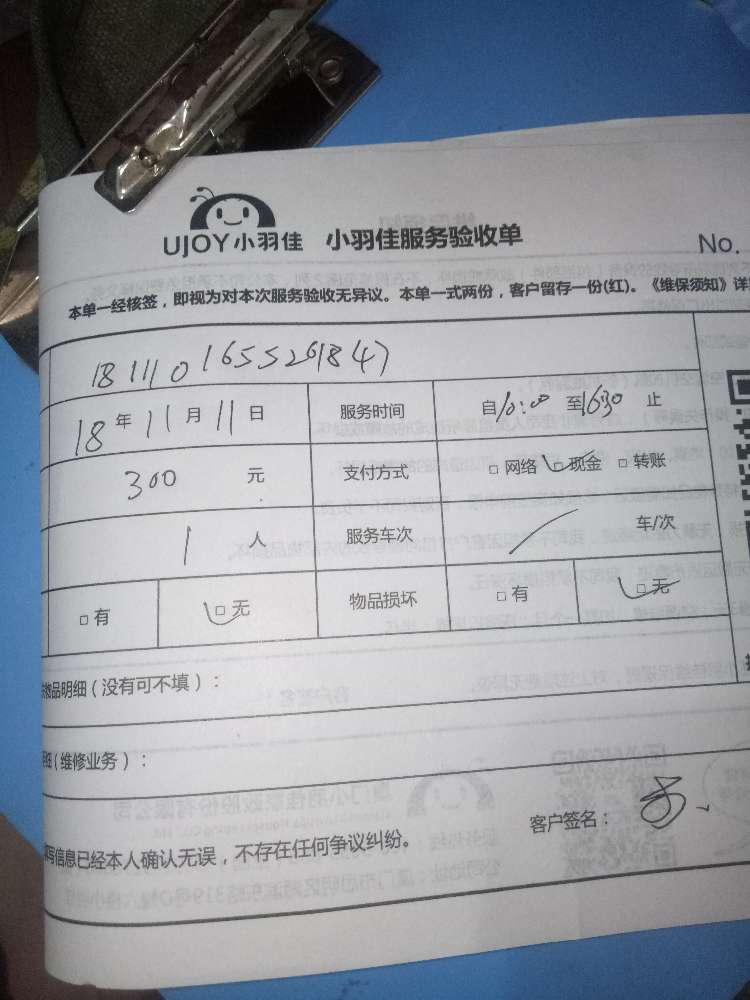 UJOY小羽佳 小羽佳服务验收单
No.
本单一经核签，即视为对本次服务验收无异议。本单一式两份，客户留存一份(红)。《维保须知》详
1811101655261847
18年11月11日 服务时间 自10:00至16:30止
300元 支付方式 □网络 □现金 □转账
1人 服务车次 / 车/次
□有 □无 物品损坏 □有 □无
物品明细（没有可不填）：
（维修业务）：
客户签名：
写信息已经本人确认无误，不存在任何争议纠纷。